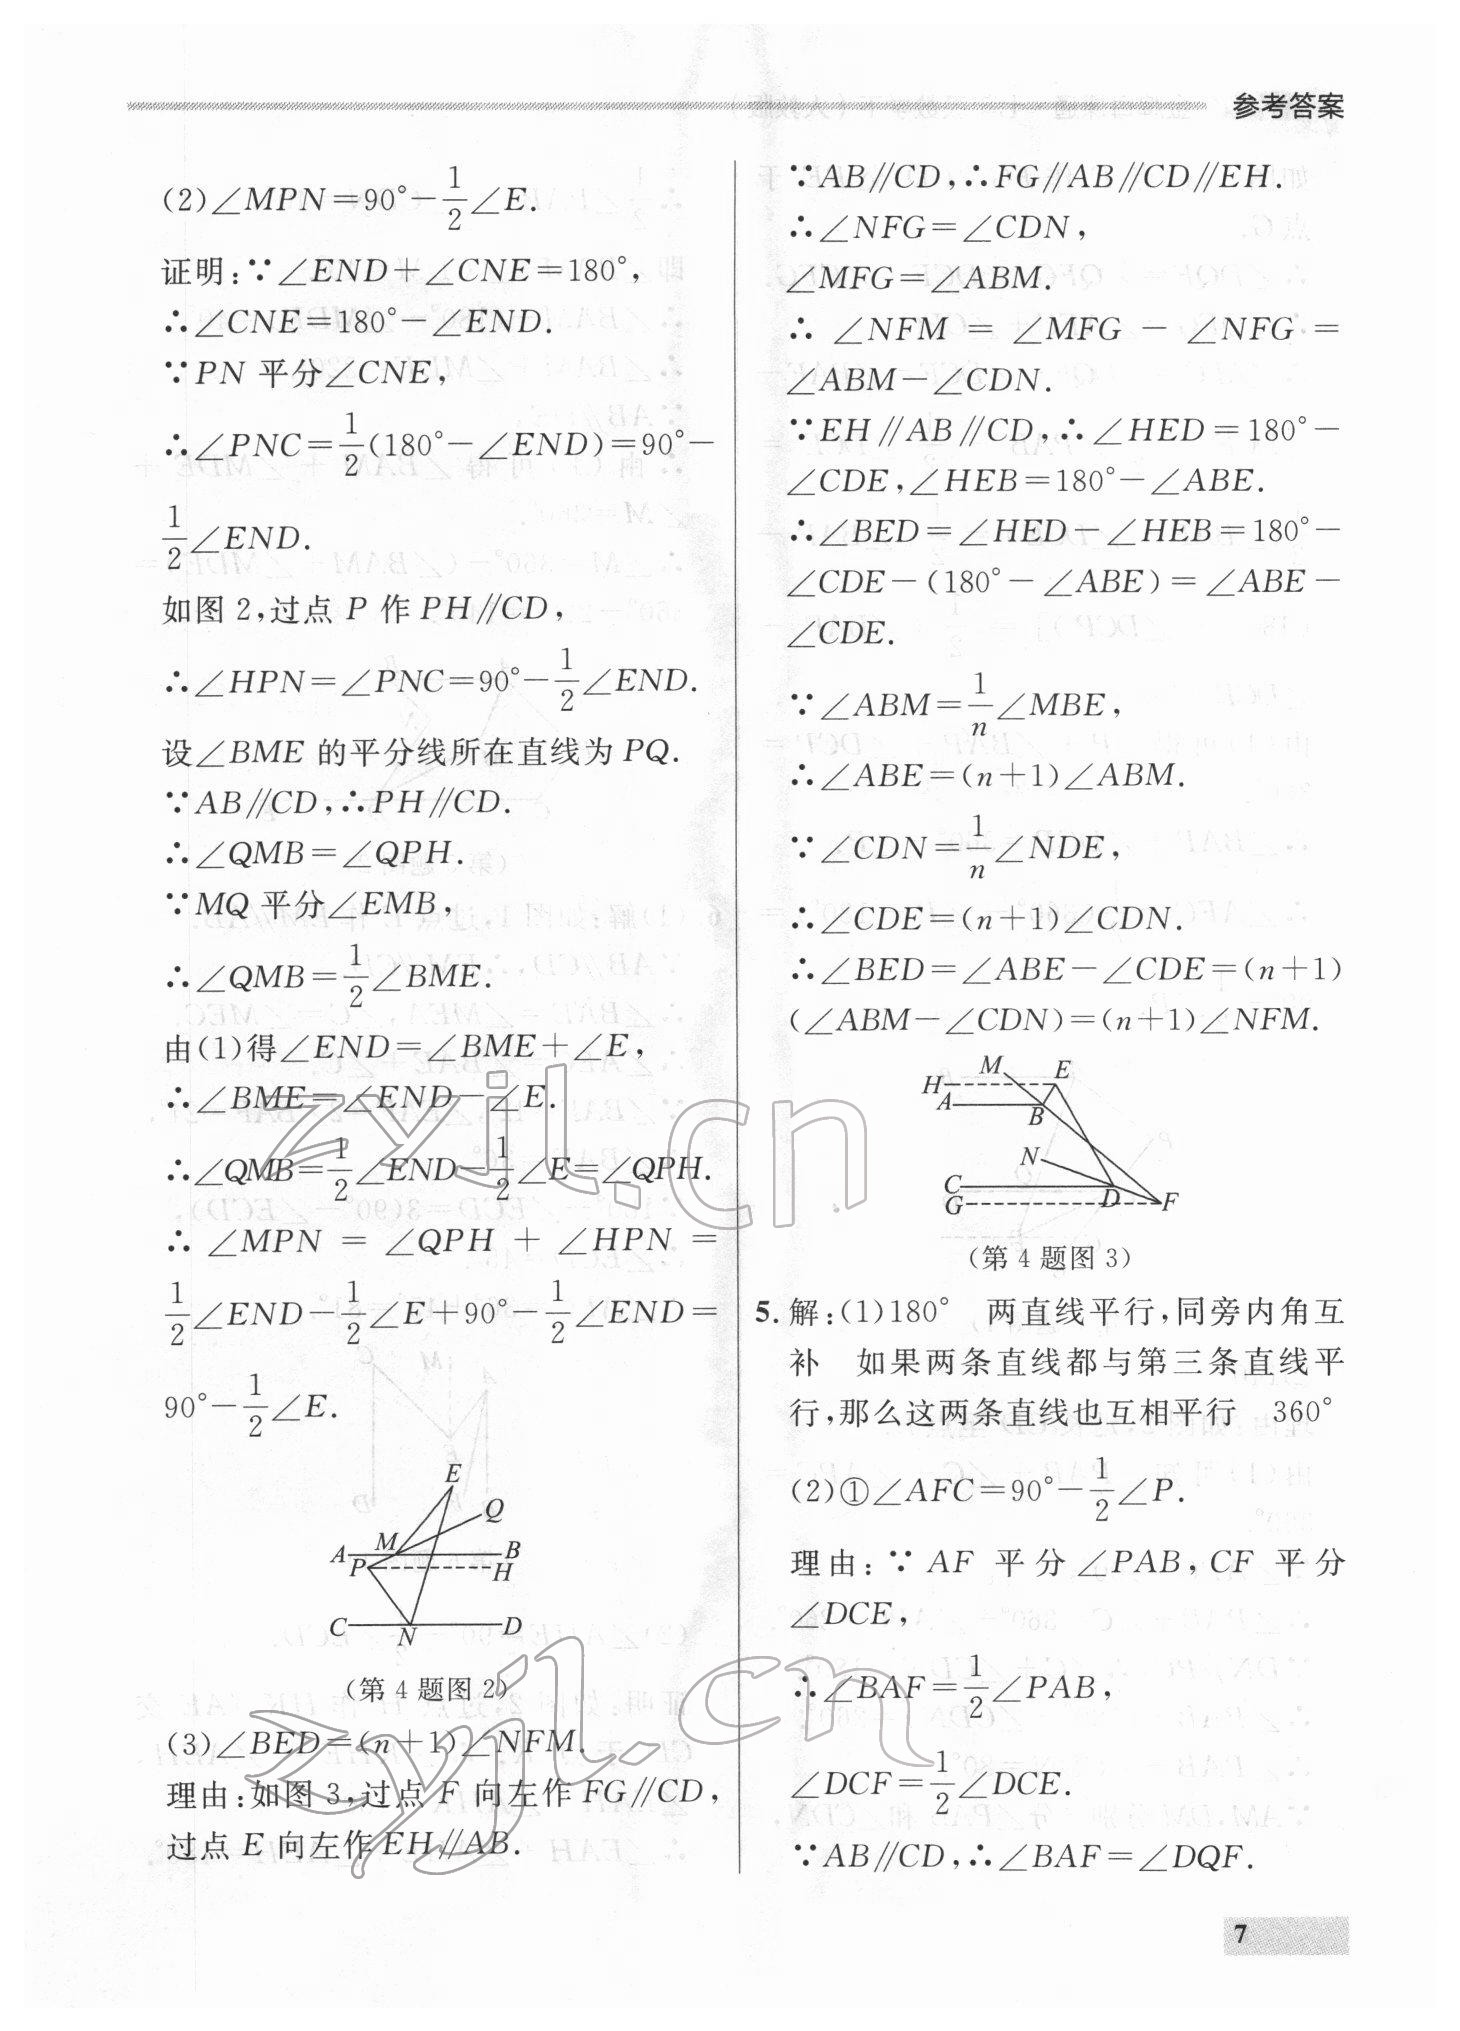 参考答案
(2)∠MPN=90°-1/2∠E.
证明:∵∠END+∠CNE=180°,
∴∠CNE=180°-∠END.
∵PN 平分∠CNE,
∴∠PNC=1/2(180°-∠END)=90°-
1/2∠END.
如图 2,过点 P 作 PH∥CD,
∴∠HPN=∠PNC=90°-1/2∠END.
设∠BME 的平分线所在直线为 PQ.
∵AB∥CD,∴PH∥CD.
∴∠QMB=∠QPH.
∵MQ 平分∠EMB,
∴∠QMB=1/2∠BME.
由(1)得∠END=∠BME+∠E,
∴∠BME=∠END-∠E.
∴∠QMB=1/2∠END-1/2∠E=∠QPH.
∴ ∠MPN = ∠QPH + ∠HPN =
1/2∠END-1/2∠E+90°-1/2∠END=
90°-1/2∠E.
E
Q
A M B
P H
C N D
(第 4 题图 2)
(3)∠BED=(n+1)∠NFM.
理由:如图 3,过点 F 向左作 FG∥CD,
过点 E 向左作 EH∥AB.
∵AB∥CD,∴FG∥AB∥CD∥EH.
∴∠NFG=∠CDN,
∠MFG=∠ABM.
∴ ∠NFM = ∠MFG - ∠NFG =
∠ABM-∠CDN.
∵EH∥AB∥CD,∴∠HED=180°-
∠CDE,∠HEB=180°-∠ABE.
∴∠BED=∠HED-∠HEB=180°-
∠CDE-(180°-∠ABE)=∠ABE-
∠CDE.
∵∠ABM=1/n∠MBE,
∴∠ABE=(n+1)∠ABM.
∵∠CDN=1/n∠NDE,
∴∠CDE=(n+1)∠CDN.
∴∠BED=∠ABE-∠CDE=(n+1)
(∠ABM-∠CDN)=(n+1)∠NFM.
M E
H
A B
N
C D
G F
(第 4 题图 3)
5. 解:(1)180° 两直线平行,同旁内角互
补 如果两条直线都与第三条直线平
行,那么这两条直线也互相平行 360°
(2)①∠AFC=90°-1/2∠P.
理由:∵ AF 平分∠PAB,CF 平分
∠DCE,
∴∠BAF=1/2∠PAB,
∠DCF=1/2∠DCE.
∵AB∥CD,∴∠BAF=∠DQF.
7
zyjl.cn
zyjl.cn